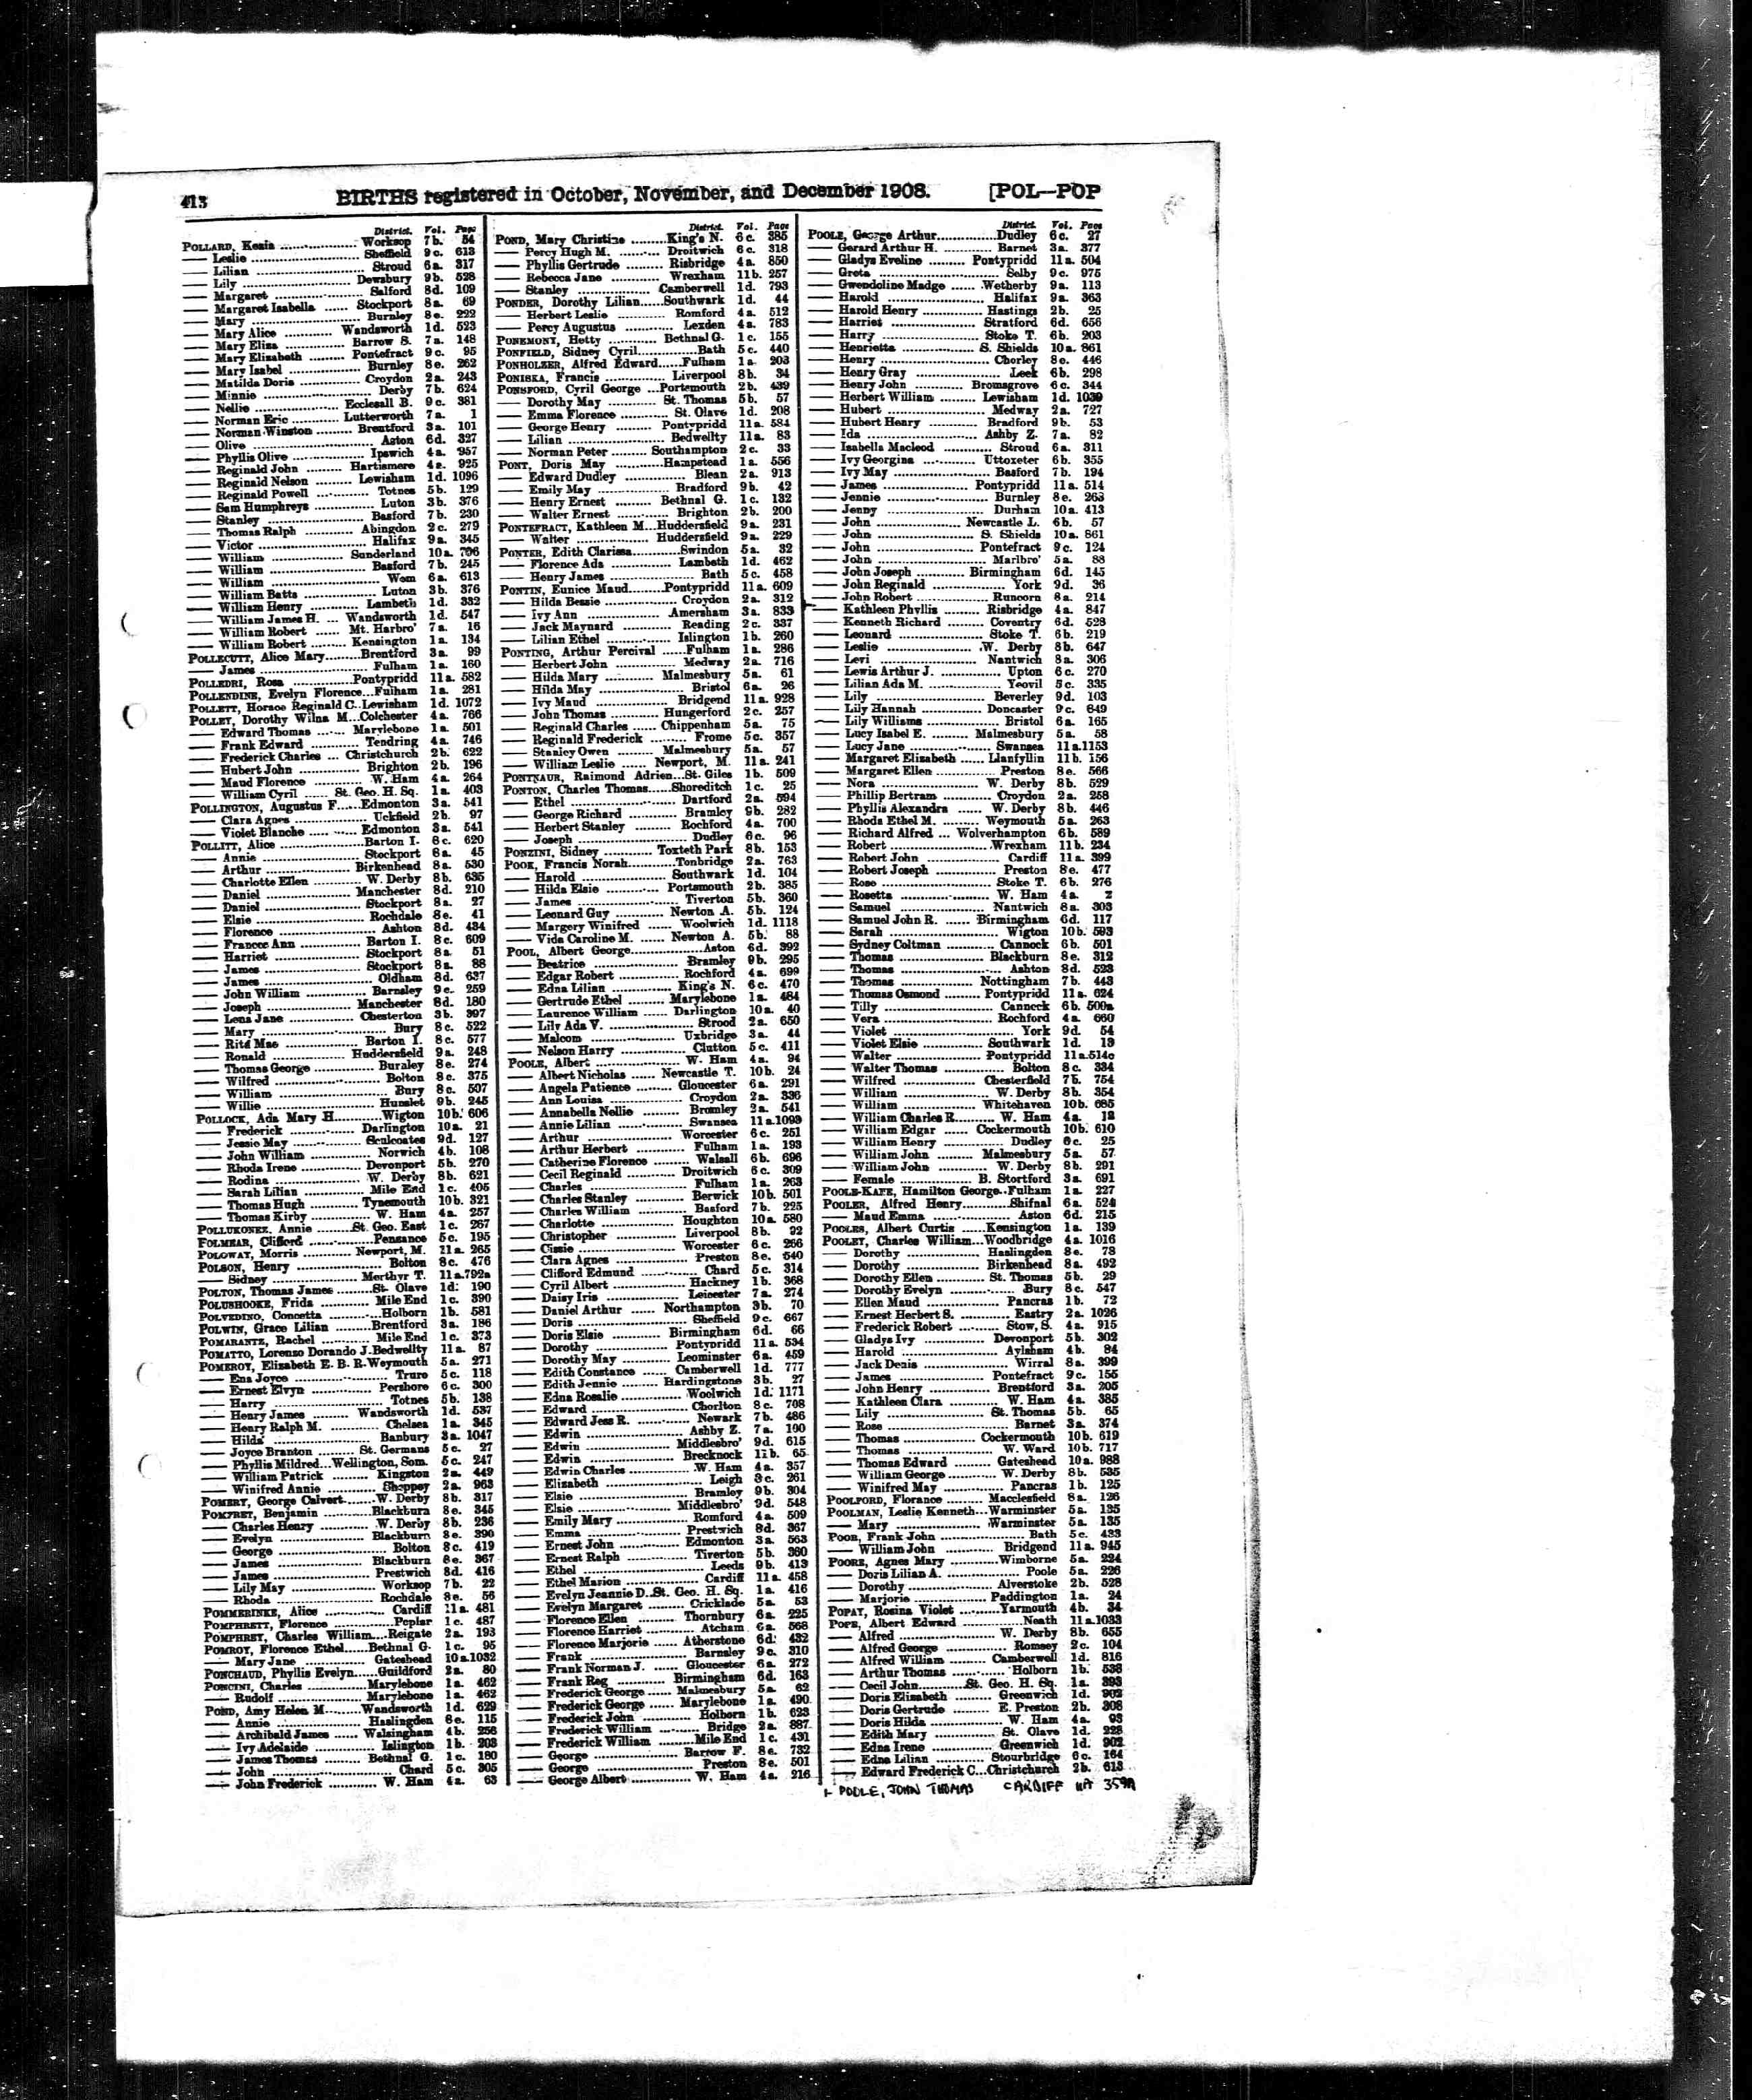 413 BIRTHS registered in October, November, and December 1908. [POL—POP
District. Vol. Page
POLLARD, Kezia Worksop 7b. 54
— Leslie Sheffield 9c. 613
— Lilian Stroud 6a. 317
— Lily Dewsbury 9b. 528
— Margaret Salford 8d. 109
— Margaret Isabella Stockport 8a. 69
— Mary Burnley 8e. 222
— Mary Alice Wandsworth 1d. 523
— Mary Eliza Barrow S. 7a. 148
— Mary Elizabeth Pontefract 9c. 95
— Mary Isabel Burnley 8e. 262
— Matilda Doris Croydon 2a. 243
— Minnie Derby 7b. 624
— Nellie Ecclesall B. 9c. 381
— Norman Eric Lutterworth 7a. 1
— Norman Winston Brentford 3a. 101
— Olive Aston 6d. 327
— Phyllis Olive Ipswich 4a. 957
— Reginald John Hartismere 4a. 925
— Reginald Nelson Lewisham 1d. 1096
— Reginald Powell Totnes 5b. 129
— Sam Humphreys Luton 3b. 376
— Stanley Basford 7b. 230
— Thomas Ralph Abingdon 2c. 279
— Victor Halifax 9a. 345
— William Sunderland 10a. 706
— William Basford 7b. 245
— William Wem 6a. 613
— William Batts Luton 3b. 376
— William Henry Lambeth 1d. 332
— William James H. Wandsworth 1d. 547
— William Robert Mt. Harbro' 7a. 16
— William Robert Kensington 1a. 134
POLLECUTT, Alice Mary Brentford 3a. 99
— James Fulham 1a. 160
POLLEDRI, Rosa Pontypridd 11a. 582
POLLENDINE, Evelyn Florence Fulham 1a. 281
POLLETT, Horace Reginald C. Lewisham 1d. 1072
POLLEY, Dorothy Wilna M. Colchester 4a. 766
— Edward Thomas Marylebone 1a. 501
— Frank Edward Tendring 4a. 746
— Frederick Charles Christchurch 2b. 622
— Hubert John Brighton 2b. 196
— Maud Florence W. Ham 4a. 264
— William Cyril St. Geo. H. Sq. 1a. 403
POLLINGTON, Augustus F. Edmonton 3a. 541
— Clara Agnes Uckfield 2b. 97
— Violet Blanche Edmonton 3a. 541
POLLITT, Alice Barton I. 8c. 620
— Annie Stockport 8a. 45
— Arthur Birkenhead 8a. 530
— Charlotte Ellen W. Derby 8b. 635
— Daniel Manchester 8d. 210
— Daniel Stockport 8a. 27
— Elsie Rochdale 8e. 41
— Florence Ashton 8d. 434
— Frances Ann Barton I. 8c. 609
— Harriet Stockport 8a. 51
— James Stockport 8a. 88
— James Oldham 8d. 637
— John William Barnsley 9c. 259
— Joseph Manchester 8d. 180
— Lena Jane Chesterton 3b. 397
— Mary Bury 8c. 522
— Rita Mae Barton I. 8c. 577
— Ronald Huddersfield 9a. 248
— Thomas George Burnley 8e. 274
— Wilfred Bolton 8c. 375
— William Bury 8c. 507
— Willie Hunslet 9b. 245
POLLOCK, Ada Mary H. Wigton 10b. 606
— Frederick Darlington 10a. 21
— Jessie May Sculcoates 9d. 127
— John William Norwich 4b. 108
— Rhoda Irene Devonport 5b. 270
— Rodina W. Derby 8b. 621
— Sarah Lilian Mile End 1c. 405
— Thomas Hugh Tynemouth 10b. 321
— Thomas Kirby W. Ham 4a. 257
POLLUKONEE, Annie St. Geo. East 1c. 267
POLMEAR, Clifford Penzance 5c. 195
POLOWAY, Morris Newport, M. 11a. 265
POLSON, Henry Bolton 8c. 476
— Sidney Merthyr T. 11a. 792a
POLTON, Thomas James St. Olave 1d. 190
POLUSHOOKE, Frida Mile End 1c. 390
POLVEDINO, Concetta Holborn 1b. 581
POLWIN, Grace Lilian Brentford 3a. 186
POMARANTZ, Rachel Mile End 1c. 373
POMATTO, Lorenzo Dorando J. Bedwellty 11a. 87
POMEROY, Elizabeth E. B. R. Weymouth 5a. 271
— Ena Joyce Truro 5c. 118
— Ernest Elvyn Pershore 6c. 300
— Harry Totnes 5b. 138
— Henry James Wandsworth 1d. 537
— Henry Ralph M. Chelsea 1a. 345
— Hilda Banbury 3a. 1047
— Joyce Branton St. Germans 5c. 27
— Phyllis Mildred Wellington, Som. 5c. 247
— William Patrick Kingston 2a. 449
— Winifred Annie Sheppey 2a. 963
POMERY, George Calvert W. Derby 8b. 317
POMFRET, Benjamin Blackburn 8e. 345
— Charles Henry W. Derby 8b. 236
— Evelyn Blackburn 8e. 390
— George Bolton 8c. 419
— James Blackburn 8e. 367
— James Prestwich 8d. 416
— Lily May Worksop 7b. 22
— Rhoda Rochdale 8e. 56
POMMERINKE, Alice Cardiff 11a. 481
POMPHRETT, Florence Poplar 1c. 487
POMPHREY, Charles William Reigate 2a. 193
POMROY, Florence Ethel Bethnal G. 1c. 95
— Mary Jane Gateshead 10a. 1032
PONCHAUD, Phyllis Evelyn Guildford 2a. 80
PONCINI, Charles Marylebone 1a. 462
— Rudolf Marylebone 1a. 462
POND, Amy Helen M. Wandsworth 1d. 629
— Annie Haslingden 8e. 115
— Archibald James Walsingham 4b. 256
— Ivy Adelaide Islington 1b. 203
— James Thomas Bethnal G. 1c. 180
— John Chard 5c. 305
— John Frederick W. Ham 4a. 63
District. Vol. Page
POND, Mary Christine King's N. 6c. 385
— Percy Hugh M. Droitwich 6c. 318
— Phyllis Gertrude Risbridge 4a. 850
— Rebecca Jane Wrexham 11b. 257
— Stanley Camberwell 1d. 793
PONDER, Dorothy Lilian Southwark 1d. 44
— Herbert Leslie Romford 4a. 512
— Percy Augustus Lexden 4a. 783
PONEMONT, Hetty Bethnal G. 1c. 155
PONFIELD, Sidney Cyril Bath 5c. 440
PONHOLZER, Alfred Edward Fulham 1a. 203
PONISKA, Francis Liverpool 8b. 34
PONSFORD, Cyril George Portsmouth 2b. 439
— Dorothy May St. Thomas 5b. 57
— Emma Florence St. Olave 1d. 208
— George Henry Pontypridd 11a. 584
— Lilian Bedwellty 11a. 83
— Norman Peter Southampton 2c. 33
PONT, Doris May Hampstead 1a. 556
— Edward Dudley Blean 2a. 913
— Emily May Bradford 9b. 42
— Henry Ernest Bethnal G. 1c. 132
— Walter Ernest Brighton 2b. 200
PONTEFRACT, Kathleen M. Huddersfield 9a. 231
— Walter Huddersfield 9a. 229
PONTER, Edith Clarissa Swindon 5a. 32
— Florence Ada Lambeth 1d. 462
— Henry James Bath 5c. 458
PONTIN, Eunice Maud Pontypridd 11a. 609
— Hilda Bessie Croydon 2a. 312
— Ivy Ann Amersham 3a. 833
— Jack Maynard Reading 2c. 337
— Lilian Ethel Islington 1b. 260
PONTING, Arthur Percival Fulham 1a. 286
— Herbert John Medway 2a. 716
— Hilda Mary Malmesbury 5a. 61
— Hilda May Bristol 6a. 26
— Ivy Maud Bridgend 11a. 928
— John Thomas Hungerford 2c. 257
— Reginald Charles Chippenham 5a. 75
— Reginald Frederick Frome 5c. 357
— Stanley Owen Malmesbury 5a. 57
— William Leslie Newport, M. 11a. 241
PONTNAUR, Raimond Adrien St. Giles 1b. 509
PONTON, Charles Thomas Shoreditch 1c. 25
— Ethel Dartford 2a. 594
— George Richard Bramley 9b. 282
— Herbert Stanley Rochford 4a. 700
— Joseph Dudley 6c. 96
PONZINI, Sidney Toxteth Park 8b. 153
POOK, Francis Norah Tonbridge 2a. 763
— Harold Southwark 1d. 104
— Hilda Elsie Portsmouth 2b. 385
— James Tiverton 5b. 360
— Leonard Guy Newton A. 5b. 124
— Margery Winifred Woolwich 1d. 1118
— Vida Caroline M. Newton A. 5b. 88
POOL, Albert George Aston 6d. 392
— Beatrice Bramley 9b. 295
— Edgar Robert Rochford 4a. 699
— Edna Lilian King's N. 6c. 470
— Gertrude Ethel Marylebone 1a. 484
— Laurence William Darlington 10a. 40
— Lily Ada V. Strood 2a. 650
— Malcom Uxbridge 3a. 44
— Nelson Harry Clutton 5c. 411
POOLE, Albert W. Ham 4a. 94
— Albert Nicholas Newcastle T. 10b. 24
— Angela Patience Gloucester 6a. 291
— Ann Louisa Croydon 2a. 336
— Annabella Nellie Bromley 2a. 541
— Annie Lilian Swansea 11a. 1093
— Arthur Worcester 6c. 251
— Arthur Herbert Fulham 1a. 193
— Catherine Florence Walsall 6b. 696
— Cecil Reginald Droitwich 6c. 309
— Charles Fulham 1a. 263
— Charles Stanley Berwick 10b. 501
— Charles William Basford 7b. 225
— Charlotte Houghton 10a. 580
— Christopher Liverpool 8b. 92
— Cissie Worcester 6c. 266
— Clara Agnes Preston 8e. 540
— Clifford Edmund Chard 5c. 314
— Cyril Albert Hackney 1b. 368
— Daisy Iris Leicester 7a. 274
— Daniel Arthur Northampton 3b. 70
— Doris Sheffield 9c. 667
— Doris Elsie Birmingham 6d. 66
— Dorothy Pontypridd 11a. 534
— Dorothy May Leominster 6a. 459
— Edith Constance Camberwell 1d. 777
— Edith Jennie Hardingstone 3b. 27
— Edna Rosalie Woolwich 1d. 1171
— Edward Chorlton 8c. 708
— Edward Jess R. Newark 7b. 486
— Edwin Ashby Z. 7a. 100
— Edwin Middlesbro' 9d. 615
— Edwin Brecknock 11b. 65
— Edwin Charles W. Ham 4a. 357
— Elizabeth Leigh 8c. 261
— Elsie Bramley 9b. 304
— Elsie Middlesbro' 9d. 548
— Emily Mary Romford 4a. 509
— Emma Prestwich 8d. 367
— Ernest John Edmonton 3a. 563
— Ernest Ralph Tiverton 5b. 360
— Ethel Leeds 9b. 413
— Ethel Marion Cardiff 11a. 458
— Evelyn Jeannie D. St. Geo. H. Sq. 1a. 416
— Evelyn Margaret Cricklade 5a. 53
— Florence Ellen Thornbury 6a. 225
— Florence Harriet Atcham 6a. 568
— Florence Marjorie Atherstone 6d. 432
— Frank Barnsley 9c. 310
— Frank Norman J. Gloucester 6a. 272
— Frank Reg Birmingham 6d. 163
— Frederick George Malmesbury 5a. 62
— Frederick George Marylebone 1a. 490
— Frederick John Holborn 1b. 623
— Frederick William Bridge 2a. 887
— Frederick William Mile End 1c. 431
— George Barrow F. 8e. 732
— George Preston 8e. 501
— George Albert W. Ham 4a. 216
District. Vol. Page
POOLE, George Arthur Dudley 6c. 27
— Gerard Arthur H. Barnet 3a. 377
— Gladys Eveline Pontypridd 11a. 504
— Greta Selby 9c. 975
— Gwendoline Madge Wetherby 9a. 113
— Harold Halifax 9a. 363
— Harold Henry Hastings 2b. 25
— Harriet Stratford 6d. 656
— Harry Stoke T. 6b. 203
— Henrietta S. Shields 10a. 861
— Henry Chorley 8e. 446
— Henry Gray Leek 6b. 298
— Henry John Bromsgrove 6c. 344
— Herbert William Lewisham 1d. 1039
— Hubert Medway 2a. 727
— Hubert Henry Bradford 9b. 53
— Ida Ashby Z. 7a. 82
— Isabella Macleod Stroud 6a. 311
— Ivy Georgina Uttoxeter 6b. 355
— Ivy May Basford 7b. 194
— James Pontypridd 11a. 514
— Jennie Burnley 8e. 263
— Jenny Durham 10a. 413
— John Newcastle L. 6b. 57
— John S. Shields 10a. 861
— John Pontefract 9c. 124
— John Marlbro' 5a. 88
— John Joseph Birmingham 6d. 145
— John Reginald York 9d. 36
— John Robert Runcorn 8a. 214
— Kathleen Phyllis Risbridge 4a. 847
— Kenneth Richard Coventry 6d. 528
— Leonard Stoke T. 6b. 219
— Leslie W. Derby 8b. 647
— Levi Nantwich 8a. 306
— Lewis Arthur J. Upton 6c. 270
— Lilian Ada M. Yeovil 5c. 335
— Lily Beverley 9d. 103
— Lily Hannah Doncaster 9c. 849
— Lily Williams Bristol 6a. 165
— Lucy Isabel E. Malmesbury 5a. 58
— Lucy Jane Swansea 11a. 1153
— Margaret Elizabeth Llanfyllin 11b. 156
— Margaret Ellen Preston 8e. 566
— Nora W. Derby 8b. 529
— Phillip Bertram Croydon 2a. 258
— Phyllis Alexandra W. Derby 8b. 446
— Rhoda Ethel M. Weymouth 5a. 263
— Richard Alfred Wolverhampton 6b. 589
— Robert Wrexham 11b. 234
— Robert John Cardiff 11a. 399
— Robert Joseph Preston 8e. 477
— Rose Stoke T. 6b. 276
— Rosetta W. Ham 4a. 2
— Samuel Nantwich 8a. 303
— Samuel John R. Birmingham 6d. 117
— Sarah Wigton 10b. 593
— Sydney Coltman Cannock 6b. 501
— Thomas Blackburn 8e. 312
— Thomas Ashton 8d. 523
— Thomas Nottingham 7b. 443
— Thomas Osmond Pontypridd 11a. 624
— Tilly Cannock 6b. 500a
— Vera Rochford 4a. 660
— Violet York 9d. 54
— Violet Elsie Southwark 1d. 13
— Walter Pontypridd 11a. 514c
— Walter Thomas Bolton 8c. 334
— Wilfred Chesterfield 7b. 754
— William W. Derby 8b. 354
— William Whitehaven 10b. 685
— William Charles R. W. Ham 4a. 12
— William Edgar Cockermouth 10b. 610
— William Henry Dudley 6c. 25
— William John Malmesbury 5a. 57
— William John W. Derby 8b. 291
— Female B. Stortford 3a. 691
POOLE-KAPE, Hamilton George Fulham 1a. 227
POOLER, Alfred Henry Shifnal 6a. 524
— Maud Emma Aston 6d. 215
POOLES, Albert Curtis Kensington 1a. 139
POOLEY, Charles William Woodbridge 4a. 1016
— Dorothy Haslingden 8e. 78
— Dorothy Birkenhead 8a. 492
— Dorothy Ellen St. Thomas 5b. 29
— Dorothy Evelyn Bury 8c. 547
— Ellen Maud Pancras 1b. 72
— Ernest Herbert S. Eastry 2a. 1026
— Frederick Robert Stow, S. 4a. 915
— Gladys Ivy Devonport 5b. 302
— Harold Aylsham 4b. 84
— Jack Denis Wirral 8a. 399
— James Pontefract 9c. 155
— John Henry Brentford 3a. 205
— Kathleen Clara W. Ham 4a. 385
— Lily St. Thomas 5b. 65
— Rose Barnet 3a. 374
— Thomas Cockermouth 10b. 619
— Thomas W. Ward 10b. 717
— Thomas Edward Gateshead 10a. 988
— William George W. Derby 8b. 535
— Winifred May Pancras 1b. 125
POOLFORD, Florance Macclesfield 8a. 126
POOLMAN, Leslie Kenneth Warminster 5a. 135
— Mary Warminster 5a. 135
POOR, Frank John Bath 5c. 433
— William John Bridgend 11a. 945
POORE, Agnes Mary Wimborne 5a. 224
— Doris Lilian A. Poole 5a. 226
— Dorothy Alverstoke 2b. 528
— Marjorie Paddington 1a. 24
POPAY, Rosina Violet Yarmouth 4b. 34
POPE, Albert Edward Neath 11a. 1033
— Alfred W. Derby 8b. 655
— Alfred George Romsey 2c. 104
— Alfred William Camberwell 1d. 816
— Arthur Thomas Holborn 1b. 536
— Cecil John St. Geo. H. Sq. 1a. 393
— Doris Elizabeth Greenwich 1d. 902
— Doris Gertrude E. Preston 2b. 308
— Doris Hilda W. Ham 4a. 93
— Edith Mary St. Olave 1d. 228
— Edna Irene Greenwich 1d. 902
— Edna Lilian Stourbridge 6c. 164
— Edward Frederick C. Christchurch 2b. 613
POOLE, JOHN THOMAS CARDIFF 11A 359A